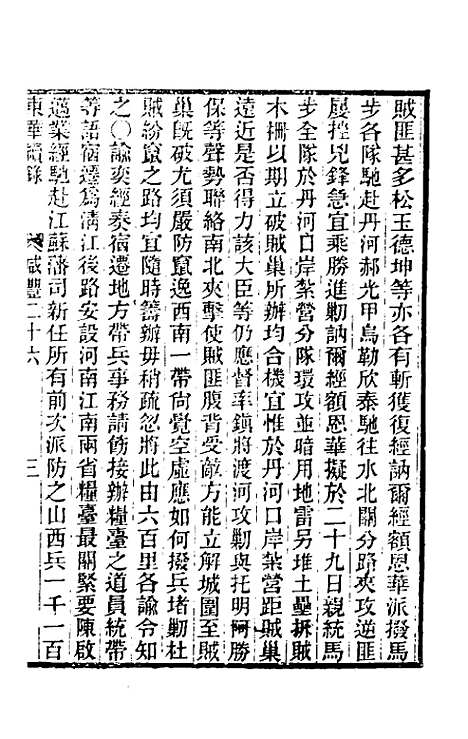 賊匪甚多松玉德坤等亦各有斬獲復經訥爾經額恩華派撥馬
步各隊馳赴丹河郝光甲烏勒欣泰馳往水北關分路夾攻逆匪
屢挫兇鋒急宜乘勝進勦訥爾經額恩華擬於二十九日親統馬
步全隊於丹河口岸紮營分隊環攻並暗用地雷另堆土壘拆賊
木柵以期立破賊巢所辦均合機宜惟於丹河口岸紮營距賊巢
遠近是否得力該大臣等仍應督率鎮將渡河攻勦與托明阿勝
保等聲勢聯絡南北夾擊使賊匪腹背受敵方能立解城圍至賊
巢旣破尤須嚴防竄逸西南一帶尙覺空虛應如何撥兵堵勦杜
賊紛竄之路均宜隨時籌辦毋稍疏忽將此由六百里各諭令知
之〇諭奕經奏宿遷地方帶兵事務請飭接辦糧臺之道員統帶
等語宿遷爲淸江後路安設河南江南兩省糧臺最關緊要陳啟
邁業經馳赴江蘇藩司新任所有前次派防之山西兵一千一百
東華續錄 咸豐二十六 三